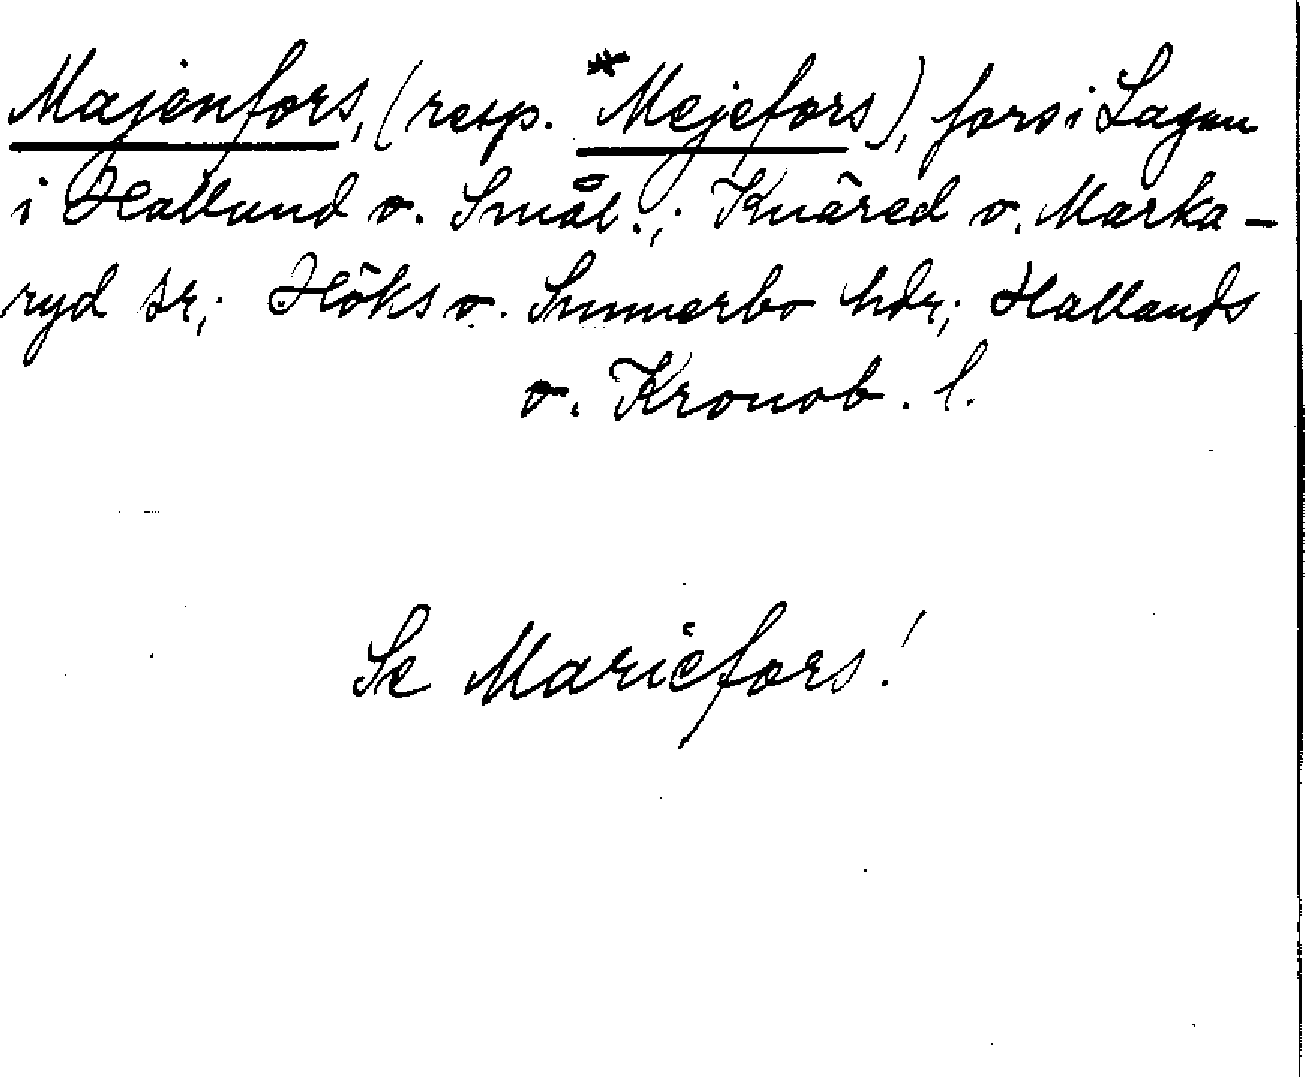 Majenfors, (resp. *Mejefors), fors i Lagan
i Halland o. Smål.; Knäred o. Marka-
ryd sr; Höks o. Sunnerbo hdr; Hallands
o. Kronob. l.
Se Mariefors!